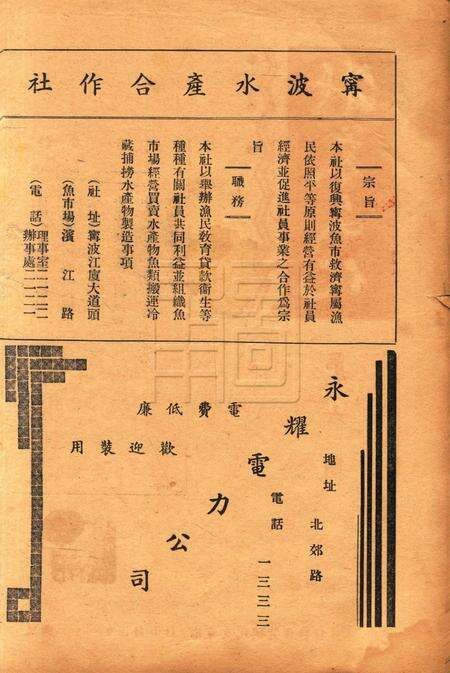 甯波水產合作社
宗旨
本社以復興甯波魚市救濟甯屬漁
民依照平等原則經營有益於社員
經濟並促進社員事業之合作爲宗
旨
職務
本社以舉辦漁民敎育貸款衞生等
種種有關社員共同利益並組織魚
市塲經營買賣水產物魚類搬運冷
藏捕撈水產物製造事項
(社址)甯波江廈大道頭
(魚市塲)濱江路
(電話)理事室二一二二
辦事處二二二一
永耀電力公司
地址 北郊路
電話 一三三三
電費低廉
歡迎裝用